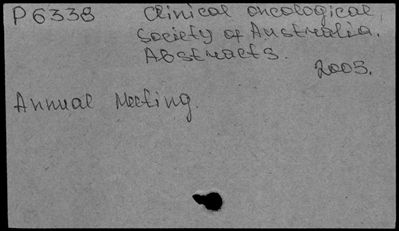 P6338 Clinical oncological
Society of Australia.
Abstracts.
2005.
Annual Meeting.